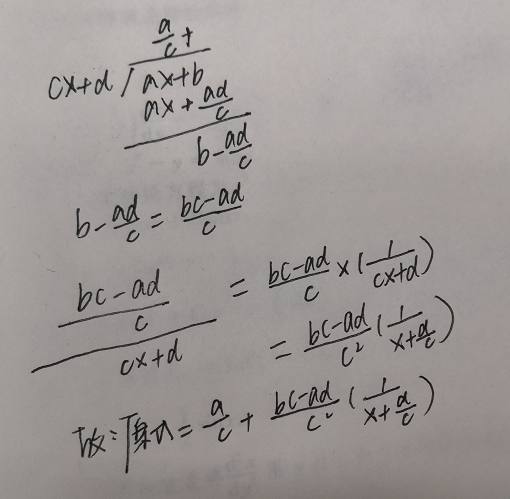 a/c +
cx+d / ax+b
ax + ad/c
b - ad/c
b - ad/c = bc-ad/c
(bc-ad/c)/(cx+d) = bc-ad/c × (1/cx+d)
= bc-ad/c² (1/x+d/c)
故:原式 = a/c + bc-ad/c² (1/x+d/c)